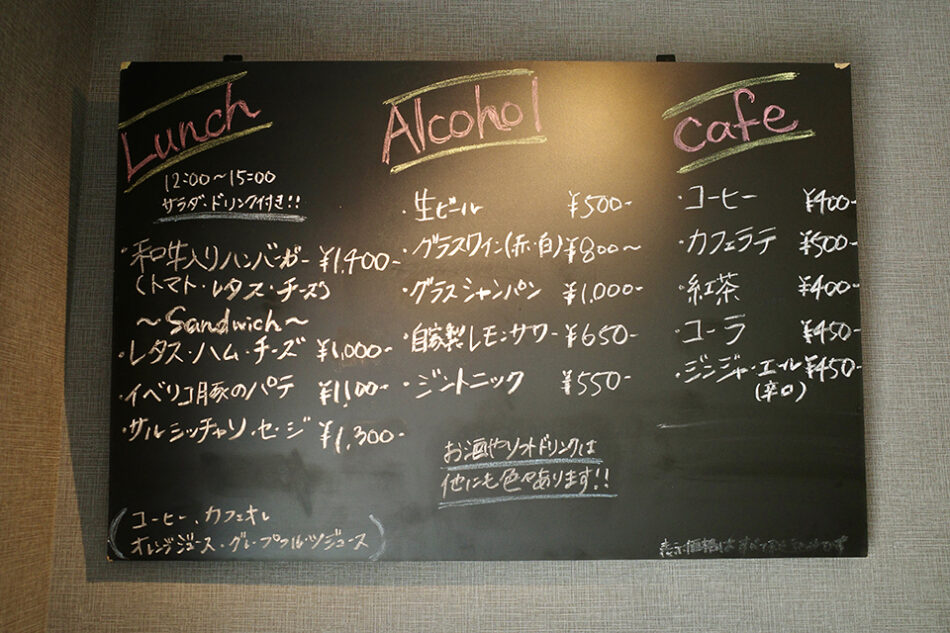 Lunch
12:00～15:00
サラダ・ドリンク付き!!
・和牛入りハンバーガー ¥1,400-
(トマト・レタス・チーズ)
～Sandwich～
・レタス・ハム・チーズ ¥1,000-
・イベリコ豚のパテ ¥1,100-
・サルシッチャソーセージ ¥1,300-
(コーヒー、カフェオレ
オレンジジュース・グレープフルーツジュース)
Alcohol
・生ビール ¥500-
・グラスワイン(赤・白) ¥800～
・グラスシャンパン ¥1,000-
・自家製レモンサワー ¥650-
・ジントニック ¥550-
お酒やソフトドリンクは
他にも色々あります!!
cafe
・コーヒー ¥400-
・カフェラテ ¥500-
・紅茶 ¥400-
・コーラ ¥450-
・ジンジャーエール ¥450-
(辛口)
表示価格はすべて